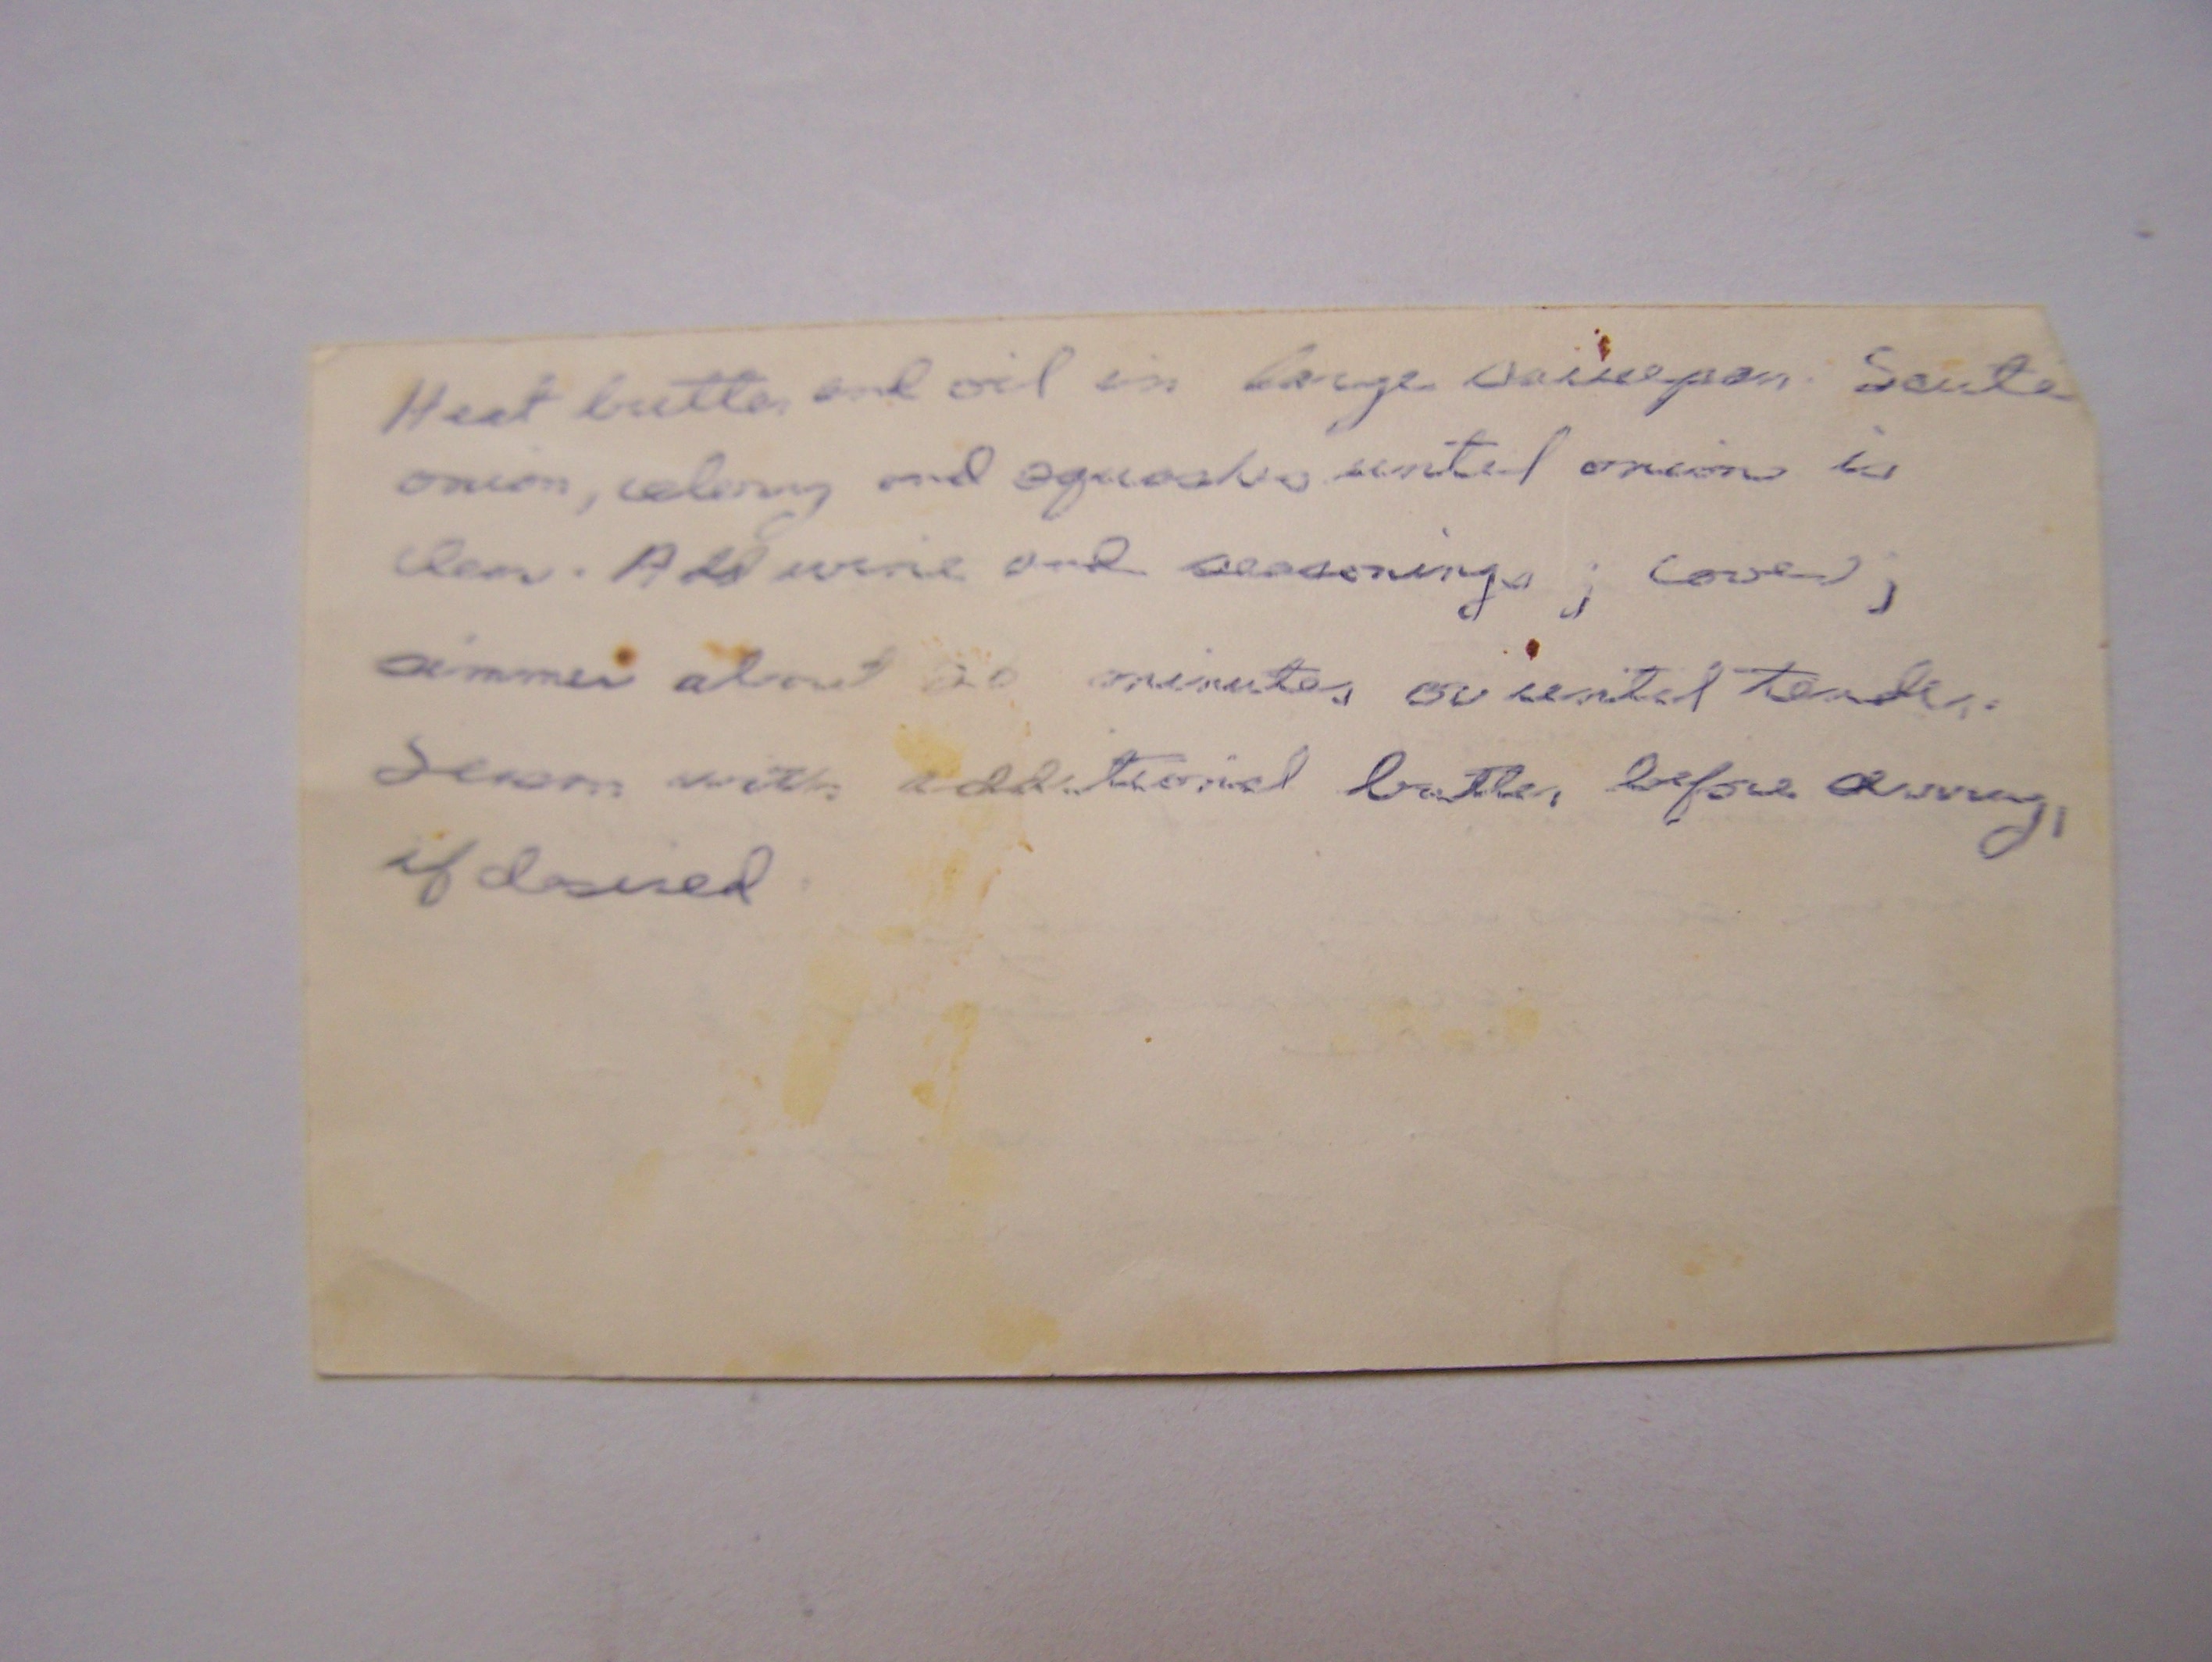 Heat butter and oil in large saucepan. Saute
onion, celery and squashes until onion is
clear. Add wine and seasonings; cover;
simmer about 20 minutes or until tender.
Season with additional butter before serving,
if desired.